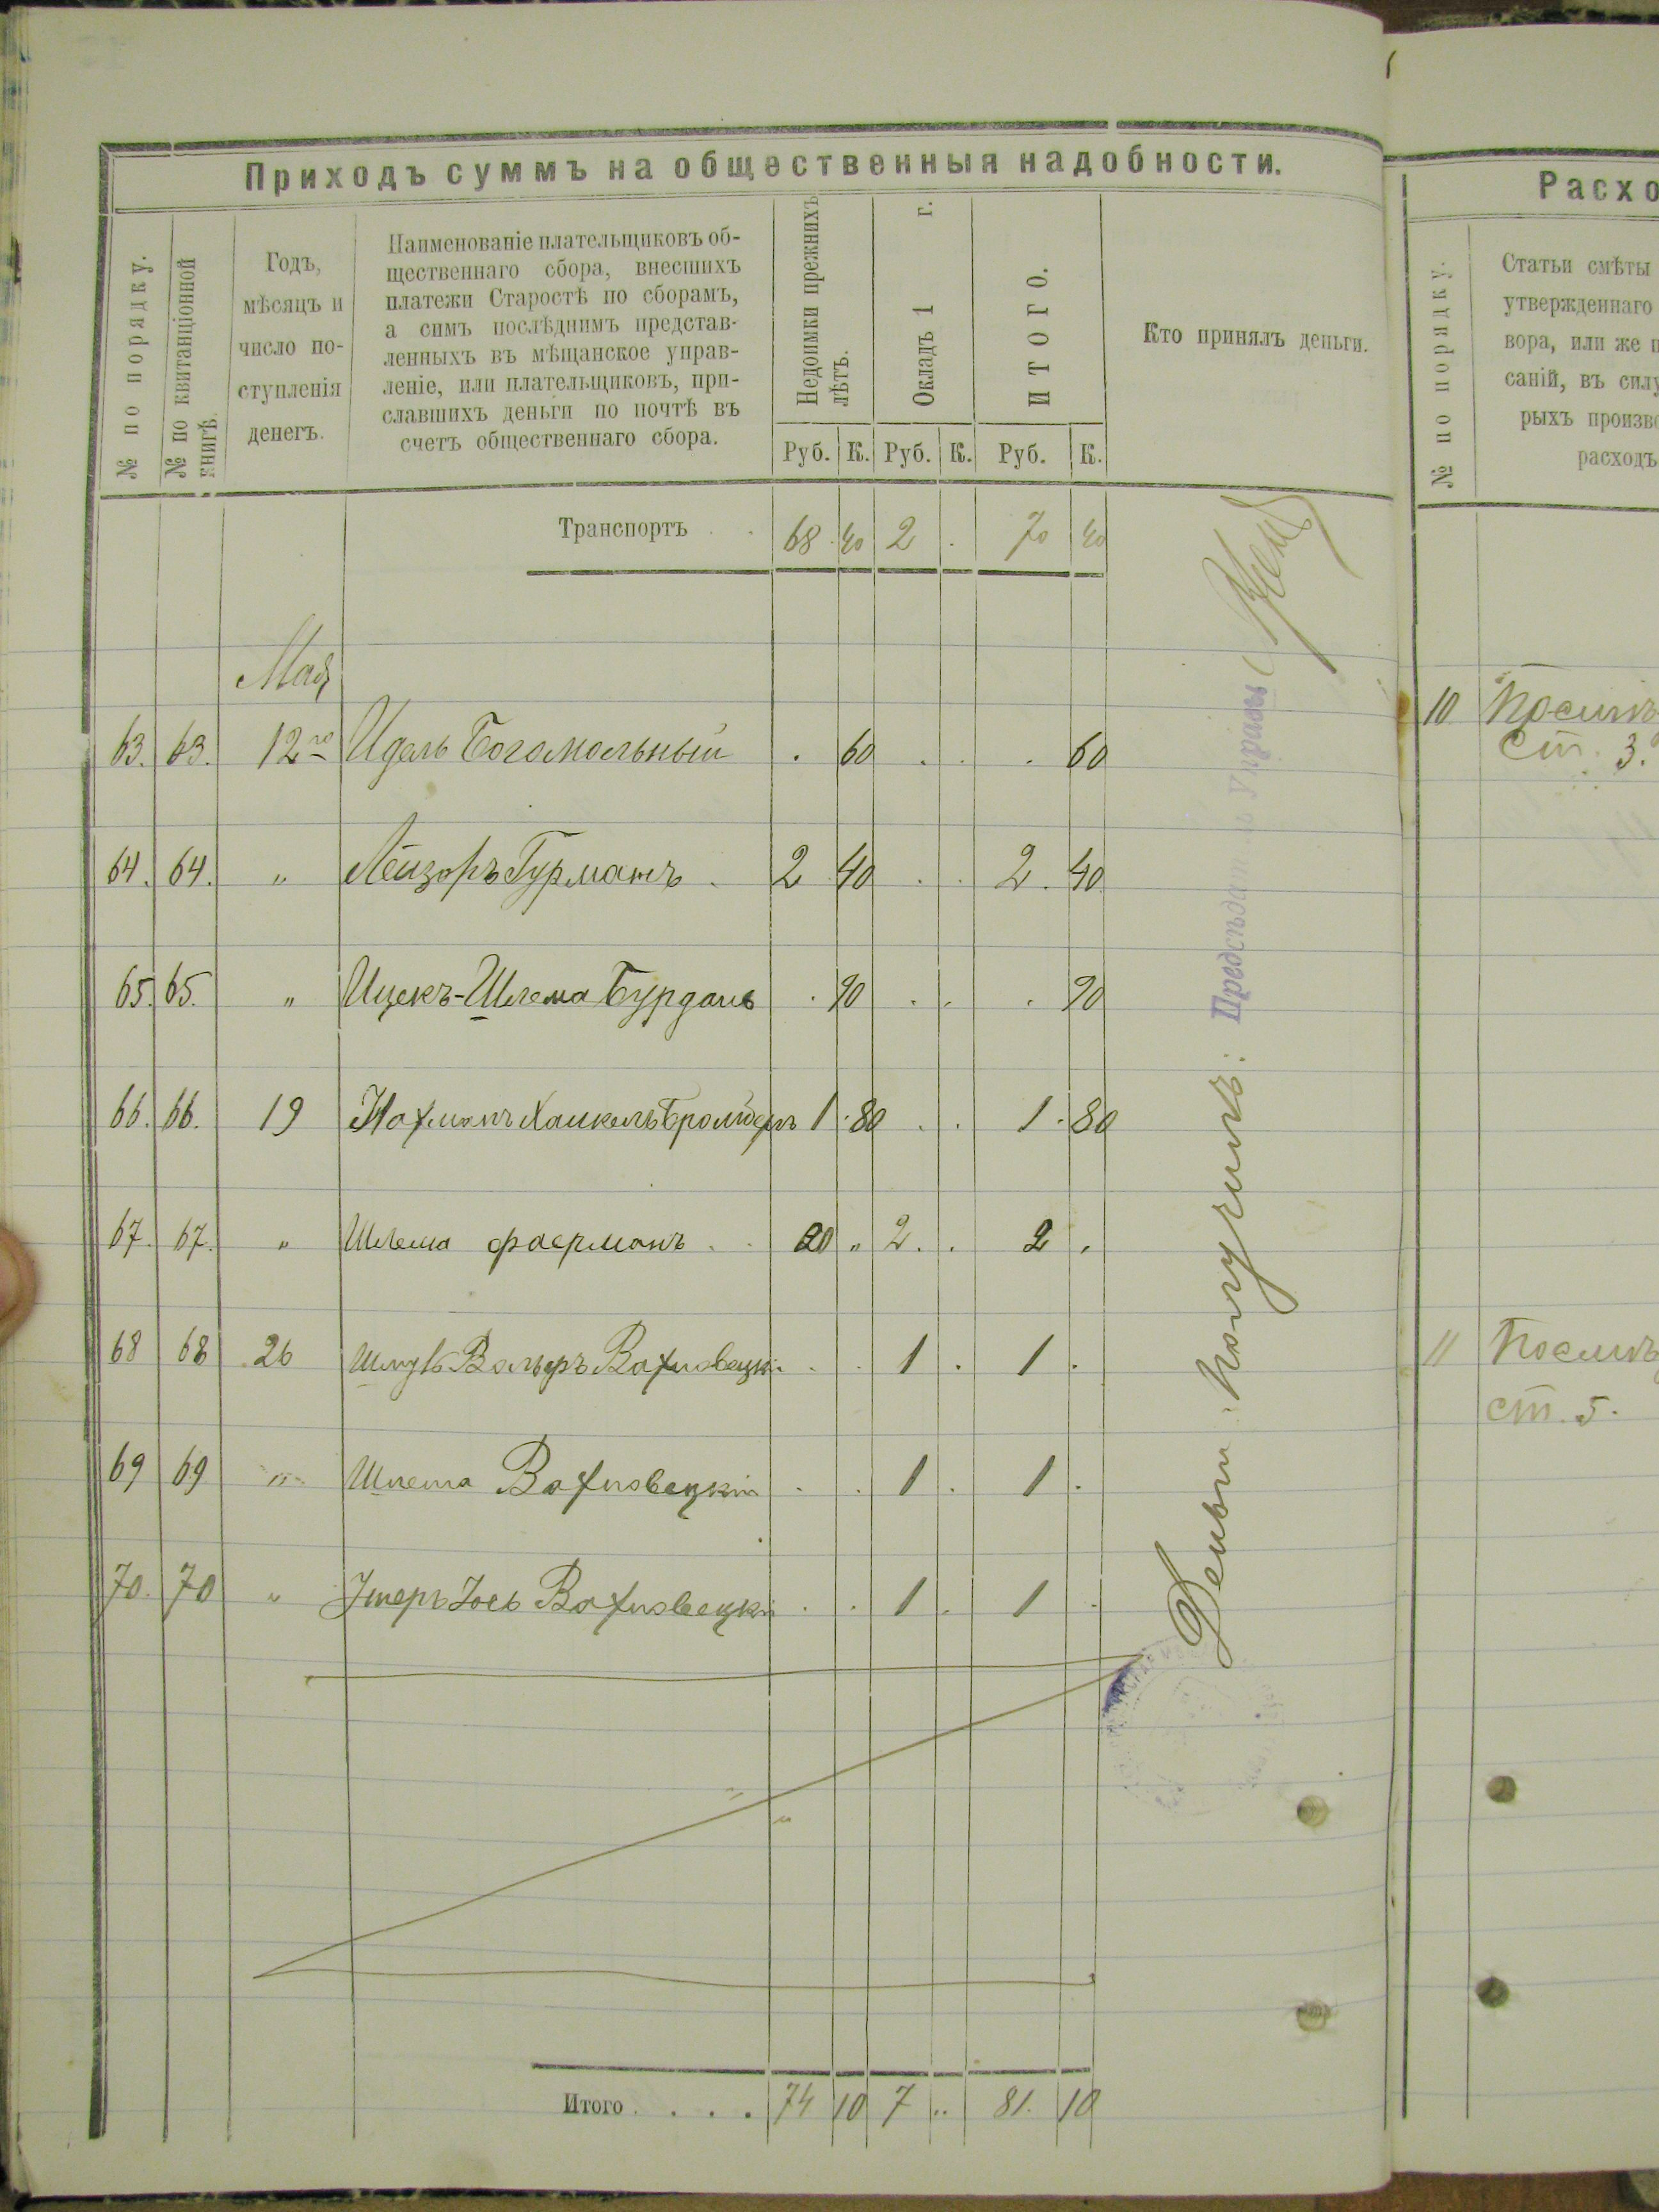 Приходъ суммъ на общественныя надобности.
№ по порядку.
№ по квитанціонной
книгѣ.
Годъ,
мѣсяцъ и
число по-
ступленія
денегъ.
Наименованіе плательщиковъ об-
щественнаго сбора, внесшихъ
платежи Старостѣ по сборамъ,
а симъ послѣднимъ представ-
ленныхъ въ мѣщанское управ-
леніе, или плательщиковъ, при-
славшихъ деньги по почтѣ въ
счетъ общественнаго сбора.
Недоимки прежнихъ
лѣтъ.
Окладъ 1 г.
ИТОГО.
Кто принялъ деньги.
Руб. К. Руб. К. Руб. К.
Транспортъ . . 68 40 2 . 70 40
Мая
63. 63. 12го Идель Богомольный . 60 . . . 60
64. 64. " Лейзоръ Гурманъ . 2 40 . . 2. 40
65. 65. " Ицекъ-Шлема Бурданъ . 90 . . . 90
66. 66. 19 Нахманъ Хаимкель 1 80 . . 1 80
67. 67. " Шлема Фаерманъ . . " 2 . . 2 .
68 68 26 Шмуль Вольфъ Вахновецкій . . 1 . 1 .
69 69 " Шлема Вахновецкій . . 1 . 1 .
70. 70 " Іось Вахновецкій . . 1 . 1 .
Итого . . . . 74 10 7 .. 81. 10
Деньги получилъ: Предсѣдат Управы
Расхо
№ по порядку.
Статьи смѣты
утвержденнаго
вора, или же п
саній, въ силу
рыхъ произво
расходъ
10
ст. 3.
11
ст. 5.